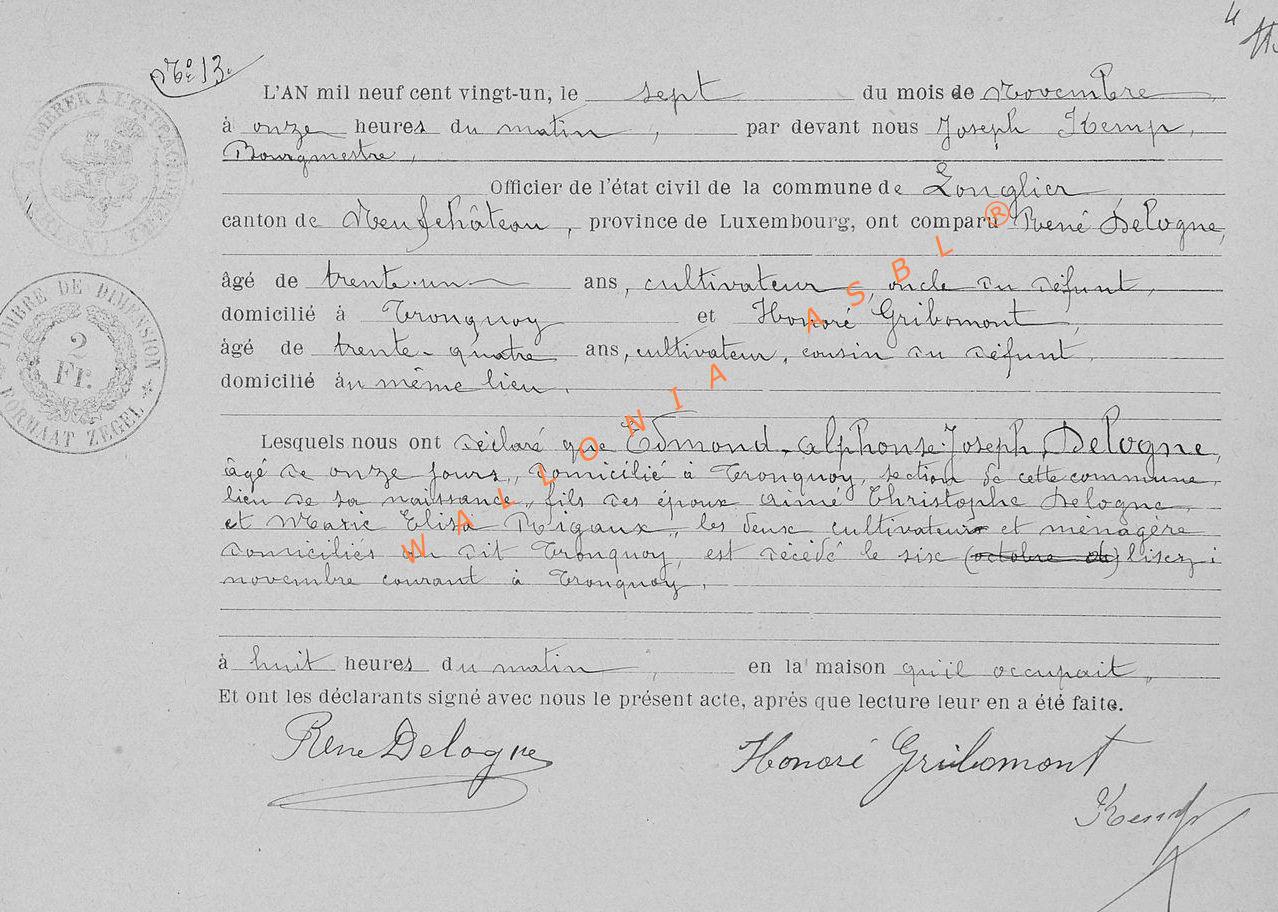 4
No 13.
L'AN mil neuf cent vingt-un, le sept du mois de Novembre,
à onze heures du matin, par devant nous Joseph Kemp,
Bourgmestre,
Officier de l'état civil de la commune de Longlier
canton de Neufchâteau, province de Luxembourg, ont comparu René Delogne,
âgé de trente-un ans, cultivateur, oncle du défunt,
domicilié à Tronquoy et Honoré Gribomont,
âgé de trente-quatre ans, cultivateur, cousin du défunt,
domicilié au même lieu.
Lesquels nous ont déclaré que Edmond-Alphonse-Joseph Delogne,
âgé de onze jours, domicilié à Tronquoy, section de cette commune,
lieu de sa naissance, fils des époux Aimé Christophe Delogne
et Marie Elisa Rigaux, les deux cultivateur et ménagère
domiciliés au dit Tronquoy, est décédé le six (octobre) lisez:
novembre courant à Tronquoy,
à huit heures du matin, en la maison qu'il occupait,
Et ont les déclarants signé avec nous le présent acte, après que lecture leur en a été faite.
René Delogne
Honoré Gribomont
Kemp
A TIMBRER A L'EXTRAORDINAIRE
TIMBRE DE DIMENSION
2
Fr.
FORMAAT ZEGEL
WALLONIA ASBL ®